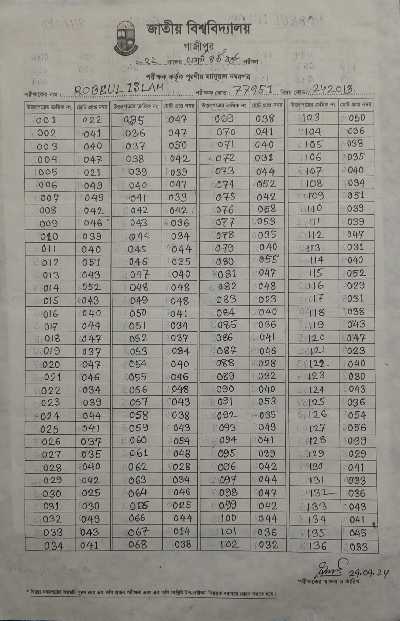 জাতীয় বিশ্ববিদ্যালয়
গাজীপুর
পরীক্ষক কর্তৃক পূরণীয় ম্যানুয়াল নম্বরপত্র
পরীক্ষকের নাম: ROBBUL ISLAM পরীক্ষক কোড: 77951 বিষয় কোড: 242013
001 022 035 047 069 038 103 050
002 041 036 047 070 041 104 036
003 040 037 050 071 040 105 038
004 047 038 042 072 031 106 035
005 021 039 039 073 044 107 040
006 049 040 047 074 052 108 034
007 049 041 039 075 042 109 051
008 042 042 042 076 058 110 039
009 046 043 036 077 053 111 039
010 039 044 034 078 035 112 047
011 040 045 044 079 040 113 031
012 051 046 025 080 055 114 040
013 043 047 040 081 047 115 052
014 052 048 048 082 048 116 029
015 043 049 048 083 023 117 031
016 040 050 041 084 040 118 038
017 044 051 034 085 036 119 043
018 047 052 037 086 041 120 047
019 037 053 034 087 046 121 023
020 047 054 040 088 028 122 040
021 046 055 046 089 032 123 030
022 034 056 048 090 040 124 043
023 039 057 043 091 053 125 036
024 044 058 038 092 035 126 054
025 041 059 043 093 049 127 056
026 037 060 054 094 041 128 039
027 035 061 048 095 039 129 029
028 040 062 028 096 042 130 041
029 042 063 034 097 044 131 033
030 025 064 046 098 047 132 036
031 030 065 025 099 042 133 043
032 049 066 044 100 044 134 041
033 043 067 014 101 036 135 045
034 041 068 038 102 032 136 033
29.04.24
পরীক্ষকের স্বাক্ষর ও তারিখ